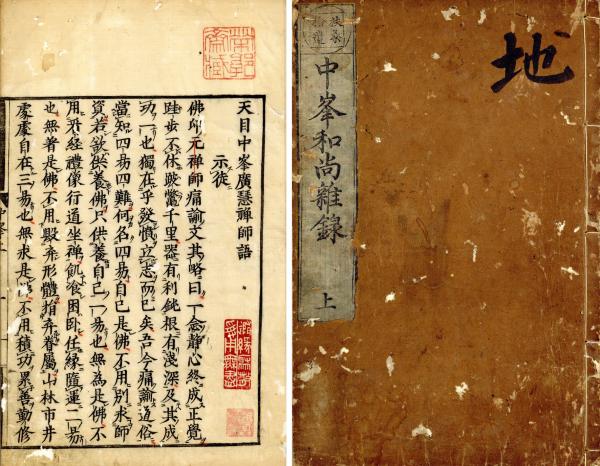 地
中峯和尚雜錄 上
天目中峯廣慧禪師語
示徒
佛印元禪師痛諭文其略曰一念靜心終成正覺
跬步不休跛鱉千里器有利鈍根有淺深及其成
功一也獨在乎發憤立志而已矣吾今痛諭道俗
當知四易四難何名四易自己是佛不用別求師
資若欲供養佛只供養自己一易也無為是佛不
用看經禮像行道坐禪飢飡困臥任緣隨運二易
也無著是佛不用毀弃形體捐弃眷屬山林市井
處處自在三易也無求是佛不用積功累善勤修